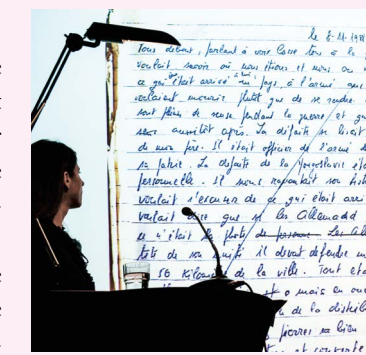 le 8-11-198
Tous debout, parlant à voix basse tous à la
voulait savoir où nous étions et nous ou
ce qui était arrivé à leur pays, à l'armée que
voulaient mourir plutôt que de se rendre.
sont pleins de ruse pendant la guerre et qu
aussitôt après. La défaite se lisait
de mon père. Il était officier de l'armée d
sa patrie. La défaite de la Yougoslavie éta
personnelle. Il nous racontait son hist
voulait s'excuser de ce qui était arri
voulait dire que si les Allemands
n'était la faute de personne. Les All
tête de son unité il devait défendre un
50 kilom de la ville. Tout éta
mais en auc
de la distrib
pierres sa bien
et couverte